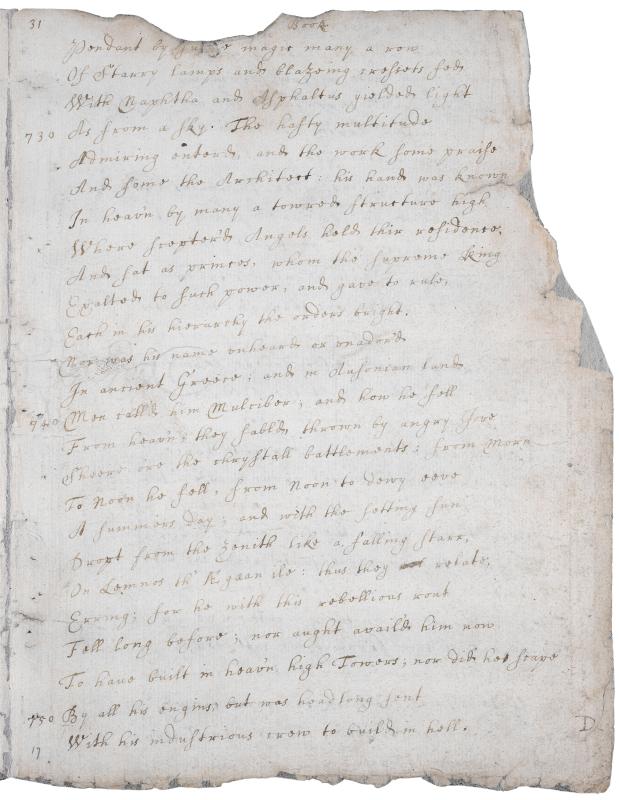 31
Book
Pendant by magic many a row
Of Starry lamps and blazeing cressets fed
With Naphtha and Asphaltus yeilded light
730 As from a sky. The hasty multitude
Admiring enterd, and the work some praise
And some the Architect: his hand was known
In heav'n by many a towred structure high
Where scepter'd Angels held thir residence,
And sat as princes, whom the supreme King
Exalted to such power, and gave to rule,
Each in his hierarchy the orders bright.
Nor was his name unheard or unador'd
In ancient Greece; and in Ausonian land
740 Men call'd him Mulciber; and how he fell
From heav'n, they fabl'd thrown by angry Jove
Sheere ore the chrystall battlements; from Morn
To Noon he fell, from Noon to dewy eeve
A summers day; and with the setting sun
Dropt from the zenith like a falling starr,
On Lemnos th' Ægaan ile: thus they relate,
Erring; for he with this rebellious rout
Fell long before; nor aught availd him now
To have built in heav'n high Towers; nor did he scape
750 By all his engins, but was headlong sent
With his industrious crew to build in hell.
17
D